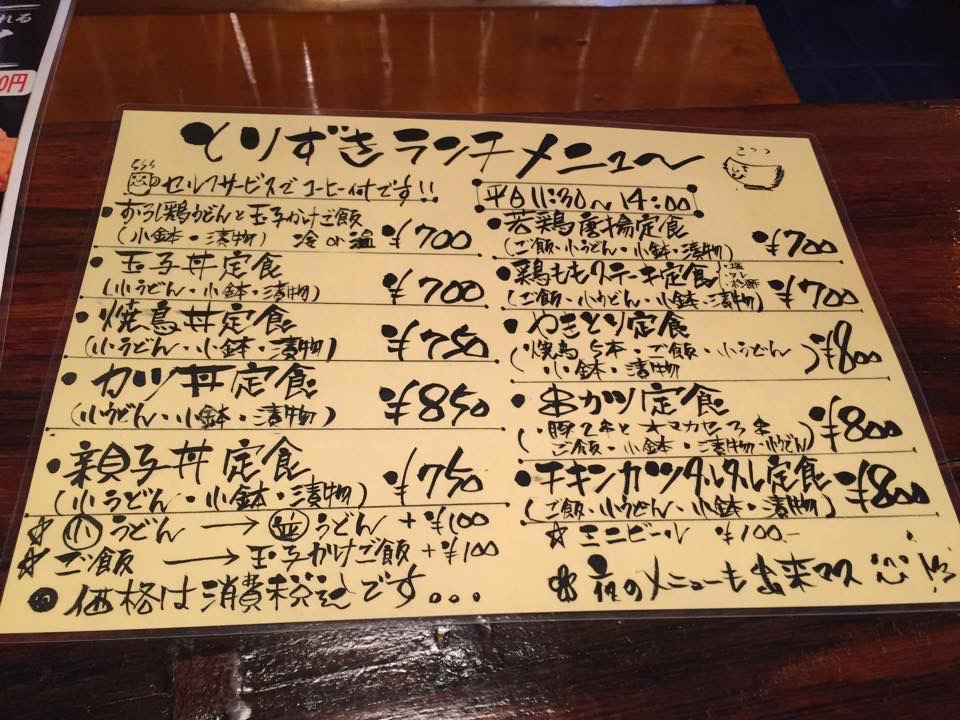 0円
とりずきランチメニュー
セルフサービスでコーヒー付です!!
平日11:30〜14:00
・おろし鶏うどんと玉子かけご飯
(小鉢・漬物) 冷or温 ¥700
・玉子丼定食
(小うどん・小鉢・漬物) ¥700
・焼鳥丼定食
(小うどん・小鉢・漬物) ¥750
・カツ丼定食
(小うどん・小鉢・漬物) ¥850
・親子丼定食
(小うどん・小鉢・漬物) ¥750
☆小うどん→並うどん+¥100
☆ご飯→玉子かけご飯+¥100
・若鶏唐揚定食
(ご飯・小うどん・小鉢・漬物) ¥700
・鶏ももステーキ定食 ・塩 ・タレ ・ポン酢
(ご飯・小うどん・小鉢・漬物) ¥700
・やきとり定食
(焼鳥5本・ご飯・小うどん
・小鉢・漬物) ¥800
・串カツ定食
(・豚2串とオマカセ3串
ご飯・小鉢・漬物・小うどん) ¥800
・チキンカツタルタル定食
(ご飯・小うどん・小鉢・漬物) ¥800
☆ミニビール ¥100-
◎価格は消費税込です...
夜のメニューも出来マス